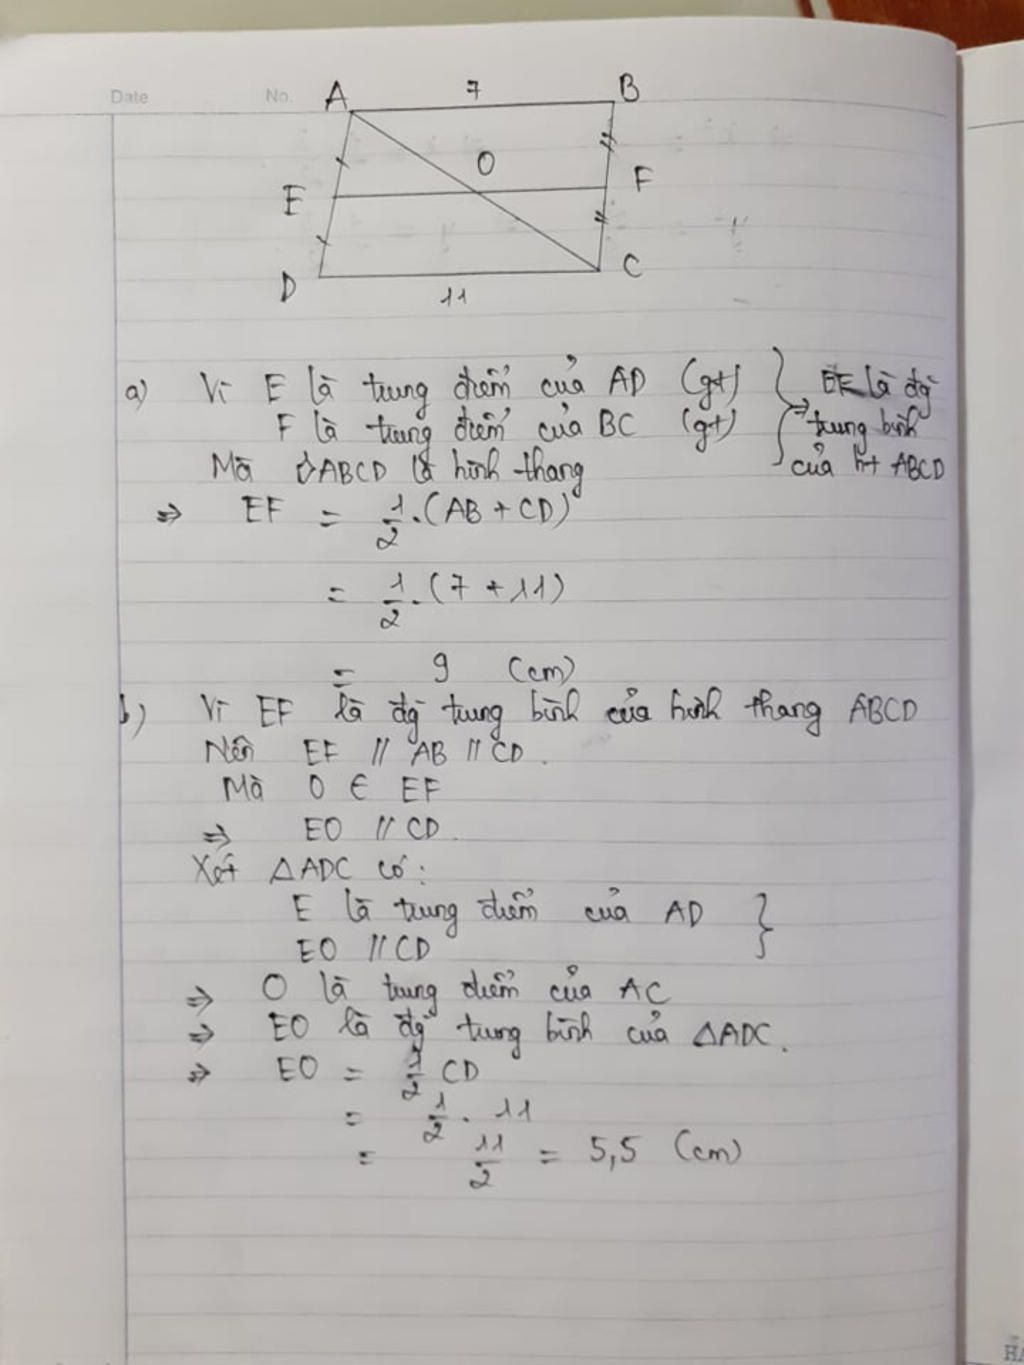 Date No.
A 7 B
O
E F
D C
11
a) Vì E là trung điểm của AD (gt)
F là trung điểm của BC (gt)
Mà ◊ABCD là hình thang
⇒ EF là đg̀
trung bình
của ht ABCD
⇒ EF = 1/2 . (AB + CD)
= 1/2 . (7 + 11)
= 9 (cm)
b) Vì EF là đg̀ trung bình của hình thang ABCD
Nên EF // AB // CD.
Mà O ∈ EF
⇒ EO // CD.
Xét △ADC có:
E là trung điểm của AD }
EO // CD
⇒ O là trung điểm của AC
⇒ EO là đg̀ trung bình của △ADC.
⇒ EO = 1/2 CD
= 1/2 . 11
= 11/2 = 5,5 (cm)